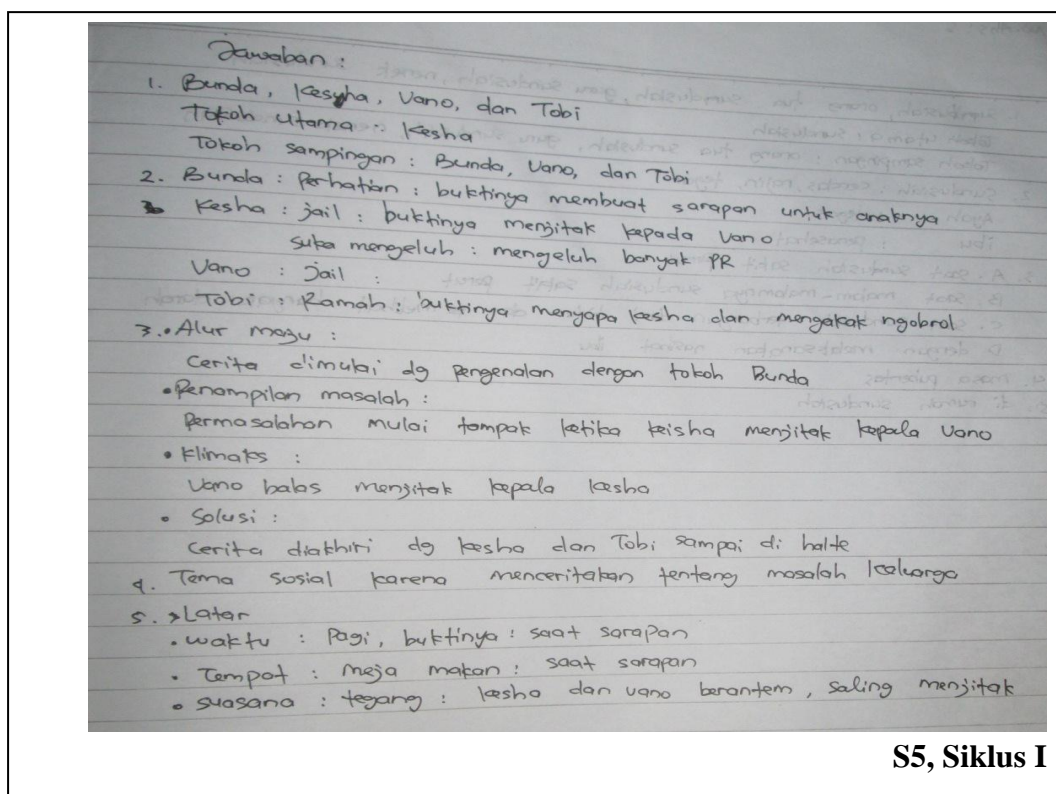 Jawaban :
1. Bunda, Kesyha, Vano, dan Tobi
Tokoh utama : Kesha
Tokoh sampingan : Bunda, Vano, dan Tobi
2. Bunda : Perhatian : buktinya membuat sarapan untuk anaknya
Kesha : jail : buktinya menjitak kepada Vano
suka mengeluh : mengeluh banyak PR
Vano : Jail :
Tobi : Ramah : buktinya menyapa kesha dan mengakak ngobrol
3. • Alur maju :
Cerita dimulai dg pengenalan dengan tokoh Bunda
• Penampilan masalah :
Permasalahan mulai tampak ketika keisha menjitak kepala Vano
• Klimaks :
Vano balas menjitak kepala kesha
• Solusi :
Cerita diakhiri dg kesha dan Tobi sampai di halte
4. Tema sosial karena menceritakan tentang masalah keluarga
5. > Latar
• Waktu : Pagi, buktinya : saat sarapan
• Tempat : meja makan : saat sarapan
• suasana : tegang : kesha dan vano berantem, saling menjitak
S5, Siklus I